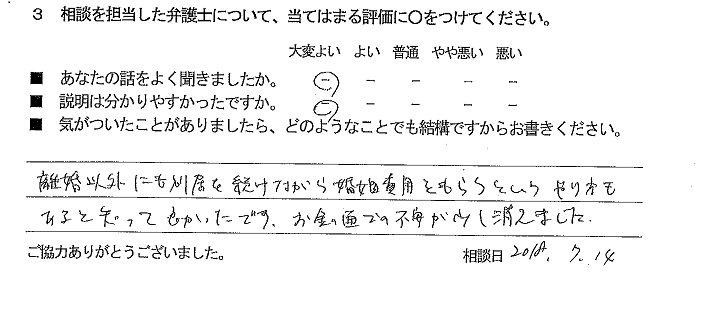 3 相談を担当した弁護士について、当てはまる評価に〇をつけてください。
大変よい よい 普通 やや悪い 悪い
■ あなたの話をよく聞きましたか。 － － － － －
■ 説明は分かりやすかったですか。 － － － － －
■ 気がついたことがありましたら、どのようなことでも結構ですからお書きください。
離婚以外にも別居を続けながら婚姻費用をもらうというやり方も
あると知って良かったです、お金の面での不安が少し消えました.
ご協力ありがとうございました。 相談日 2018. 7. 14